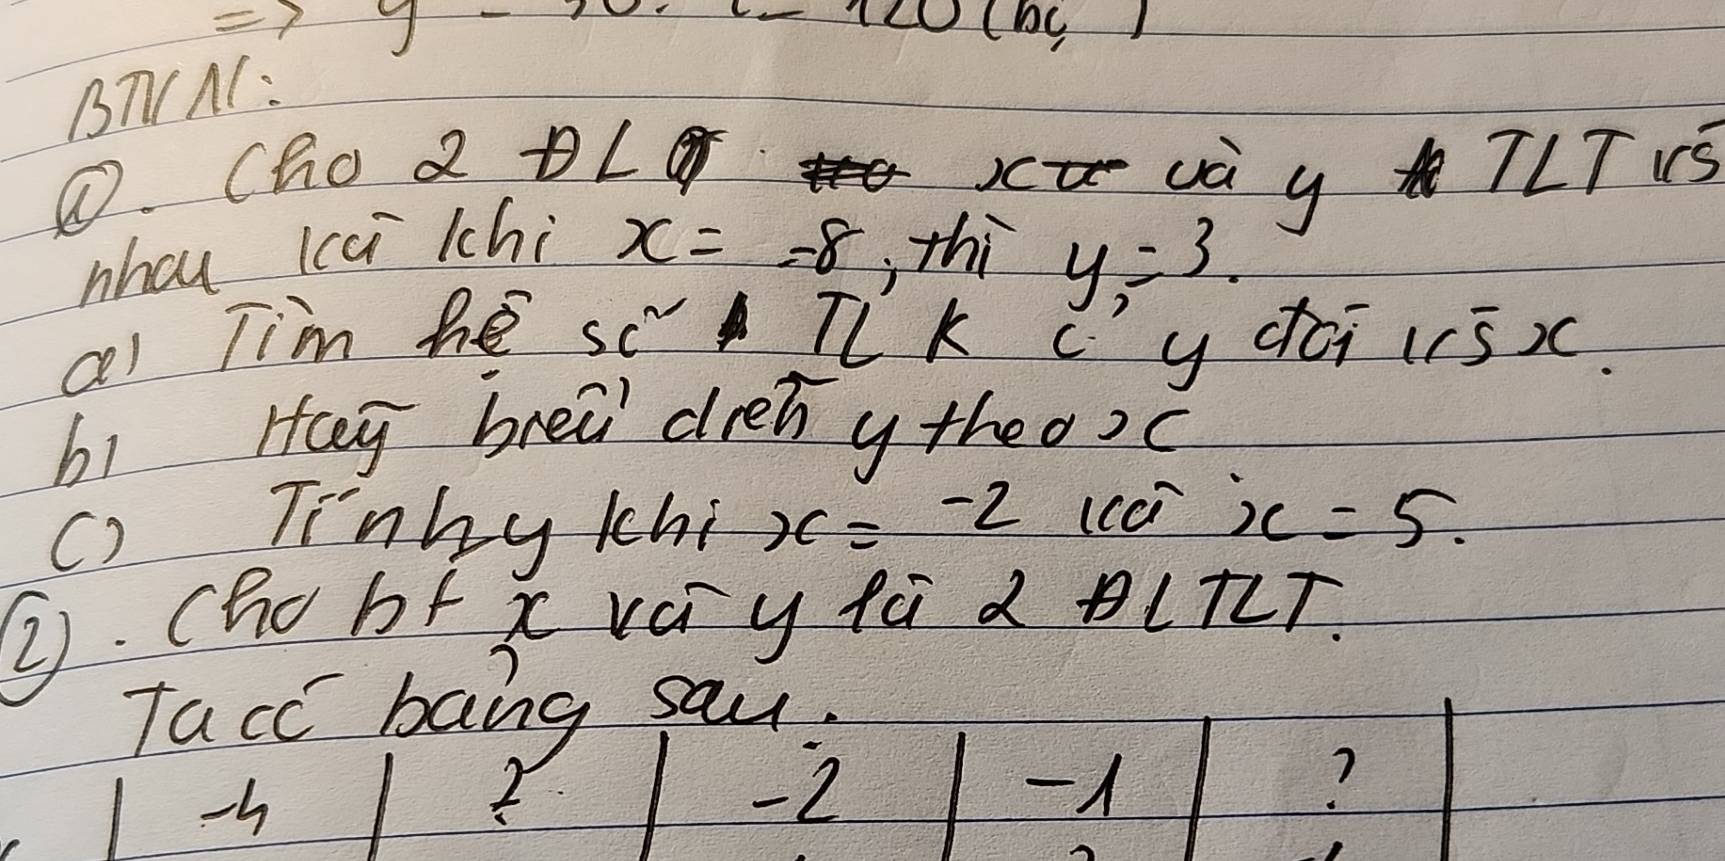 BTVN:
①. Cho 2 ĐL x và y TLT vs
nhau và khi x = -8, thì y = 3.
a) Tìm hệ số TL k c' y đối vs x.
b) Hãy biểu diễn y theo x
c) Tính y khi x = -2 và x = 5.
②. Cho bt x và y là 2 ĐLTLT.
Ta có bảng sau.
-4 ? -2 -1 ?